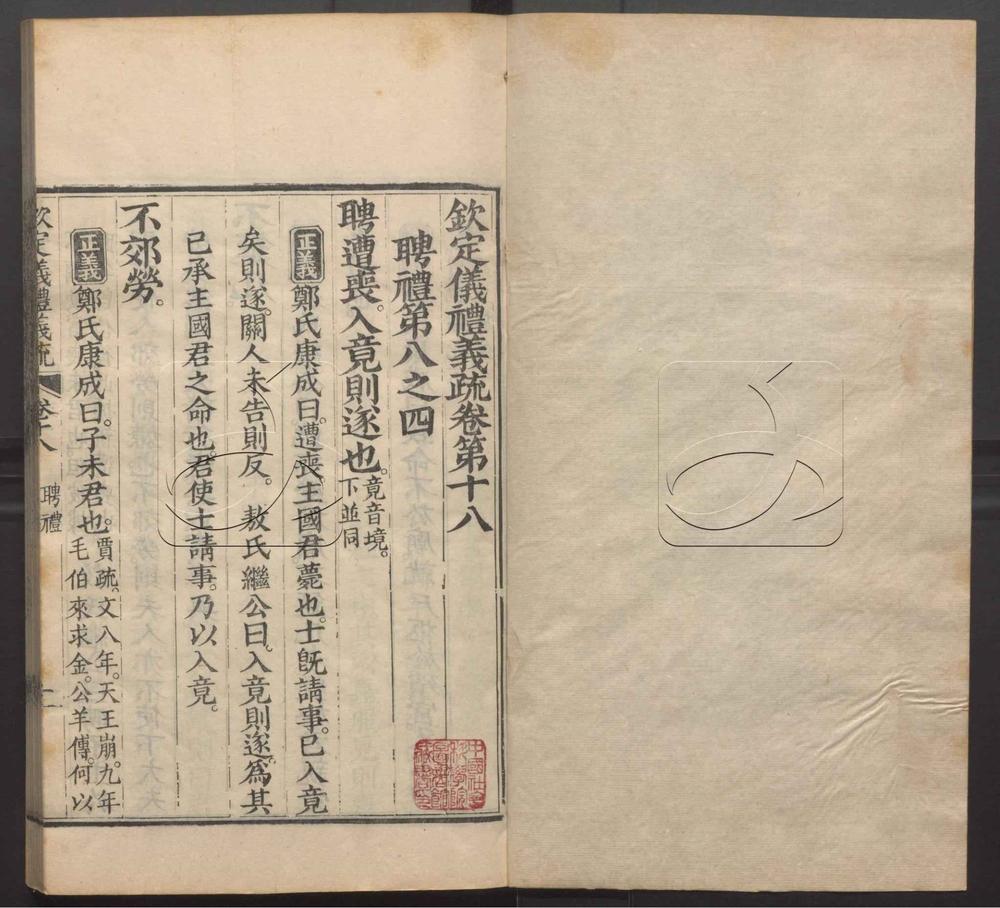 欽定儀禮義疏卷第十八
聘禮第八之四
聘遭喪。入竟則遂也。竟音境。下並同
正義鄭氏康成曰。遭喪。主國君薨也。士旣請事。已入竟
矣則遂。關人未告則反。敖氏繼公曰。入竟則遂。爲其
已承主國君之命也。君使士請事。乃以入竟。
不郊勞。
正義鄭氏康成曰。子未君也。賈疏。文八年。天王崩。九年毛伯來求金。公羊傳。何以
欽定儀禮義疏 卷十八 聘禮 一